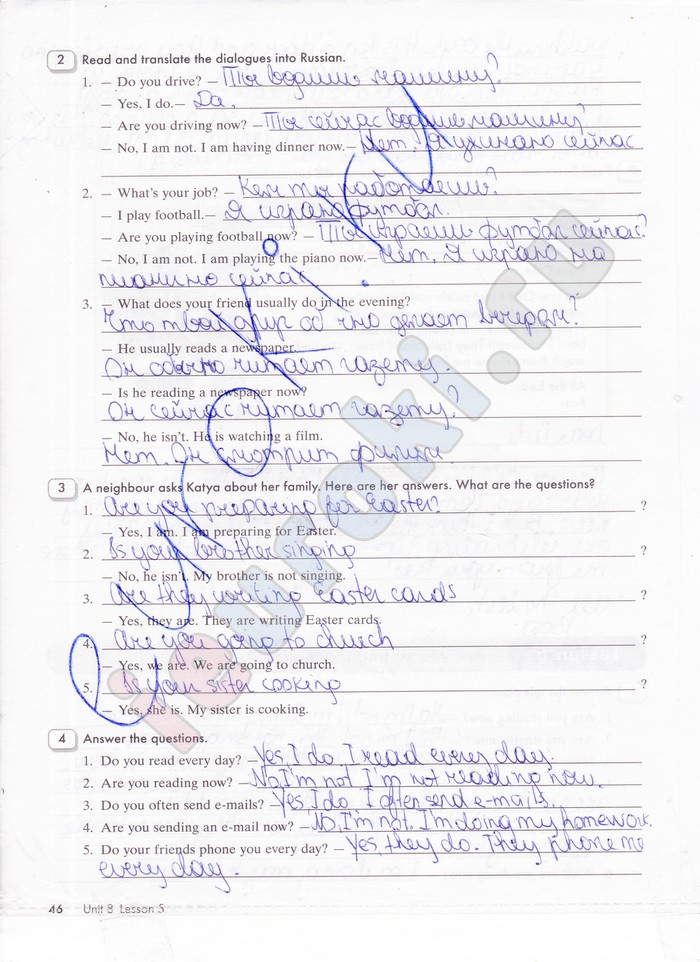 2 Read and translate the dialogues into Russian.
1. – Do you drive? – Ты водишь машину?
– Yes, I do. – Да.
– Are you driving now? – Ты сейчас водишь машину?
– No, I am not. I am having dinner now. – Нет. Я ужинаю сейчас
2. – What's your job? – Кем ты работаешь?
– I play football. – Я играю футбол.
– Are you playing football now? – Ты играешь футбол сейчас?
– No, I am not. I am playing the piano now. – Нет. Я играю на
пианино сейчас
3. – What does your friend usually do in the evening?
Что твой друг обычно делает вечерам?
– He usually reads a newspaper.
Он обычно читает газету.
– Is he reading a newspaper now?
Он сейчас читает газету?
– No, he isn't. He is watching a film.
Нет. Он смотрит фильм.
3 A neighbour asks Katya about her family. Here are her answers. What are the questions?
1. Are you preparing for Easter? ?
– Yes, I am. I am preparing for Easter.
2. Is your brother singing ?
– No, he isn't. My brother is not singing.
3. Are they writing Easter cards ?
– Yes, they are. They are writing Easter cards.
4. Are you going to church ?
– Yes, we are. We are going to church.
5. Is your sister cooking ?
– Yes, she is. My sister is cooking.
4 Answer the questions.
1. Do you read every day? – Yes, I do. I read every day.
2. Are you reading now? – No, I'm not I'm not reading now.
3. Do you often send e-mails? – Yes, I do. I often send e-mails.
4. Are you sending an email now? – No, I'm not. I'm doing my homework.
5. Do your friends phone you every day? – Yes, they do. They phone me
every day.
46 Unit 8 Lesson 5